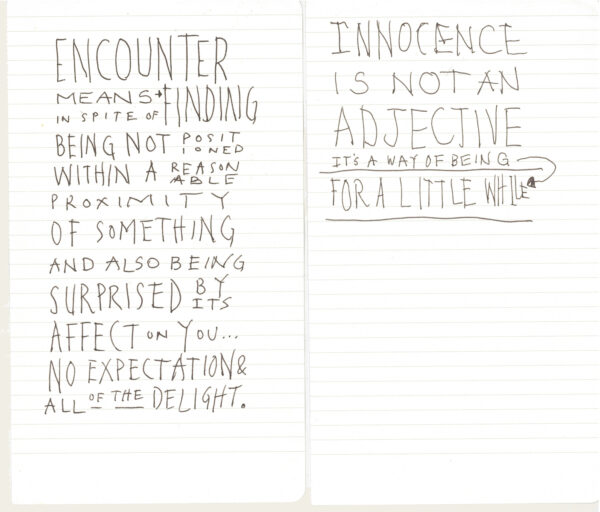 ENCOUNTER
MEANS → FINDING
IN SPITE OF
BEING NOT POSIT
IONED
WITHIN A REASON
ABLE
PROXIMITY
OF SOMETHING
AND ALSO BEING
SURPRISED BY
ITS
AFFECT ON YOU...
NO EXPECTATION &
ALL OF THE DELIGHT.
INNOCENCE
IS NOT AN
ADJECTIVE
IT'S A WAY OF BEING
FOR A LITTLE WHILE